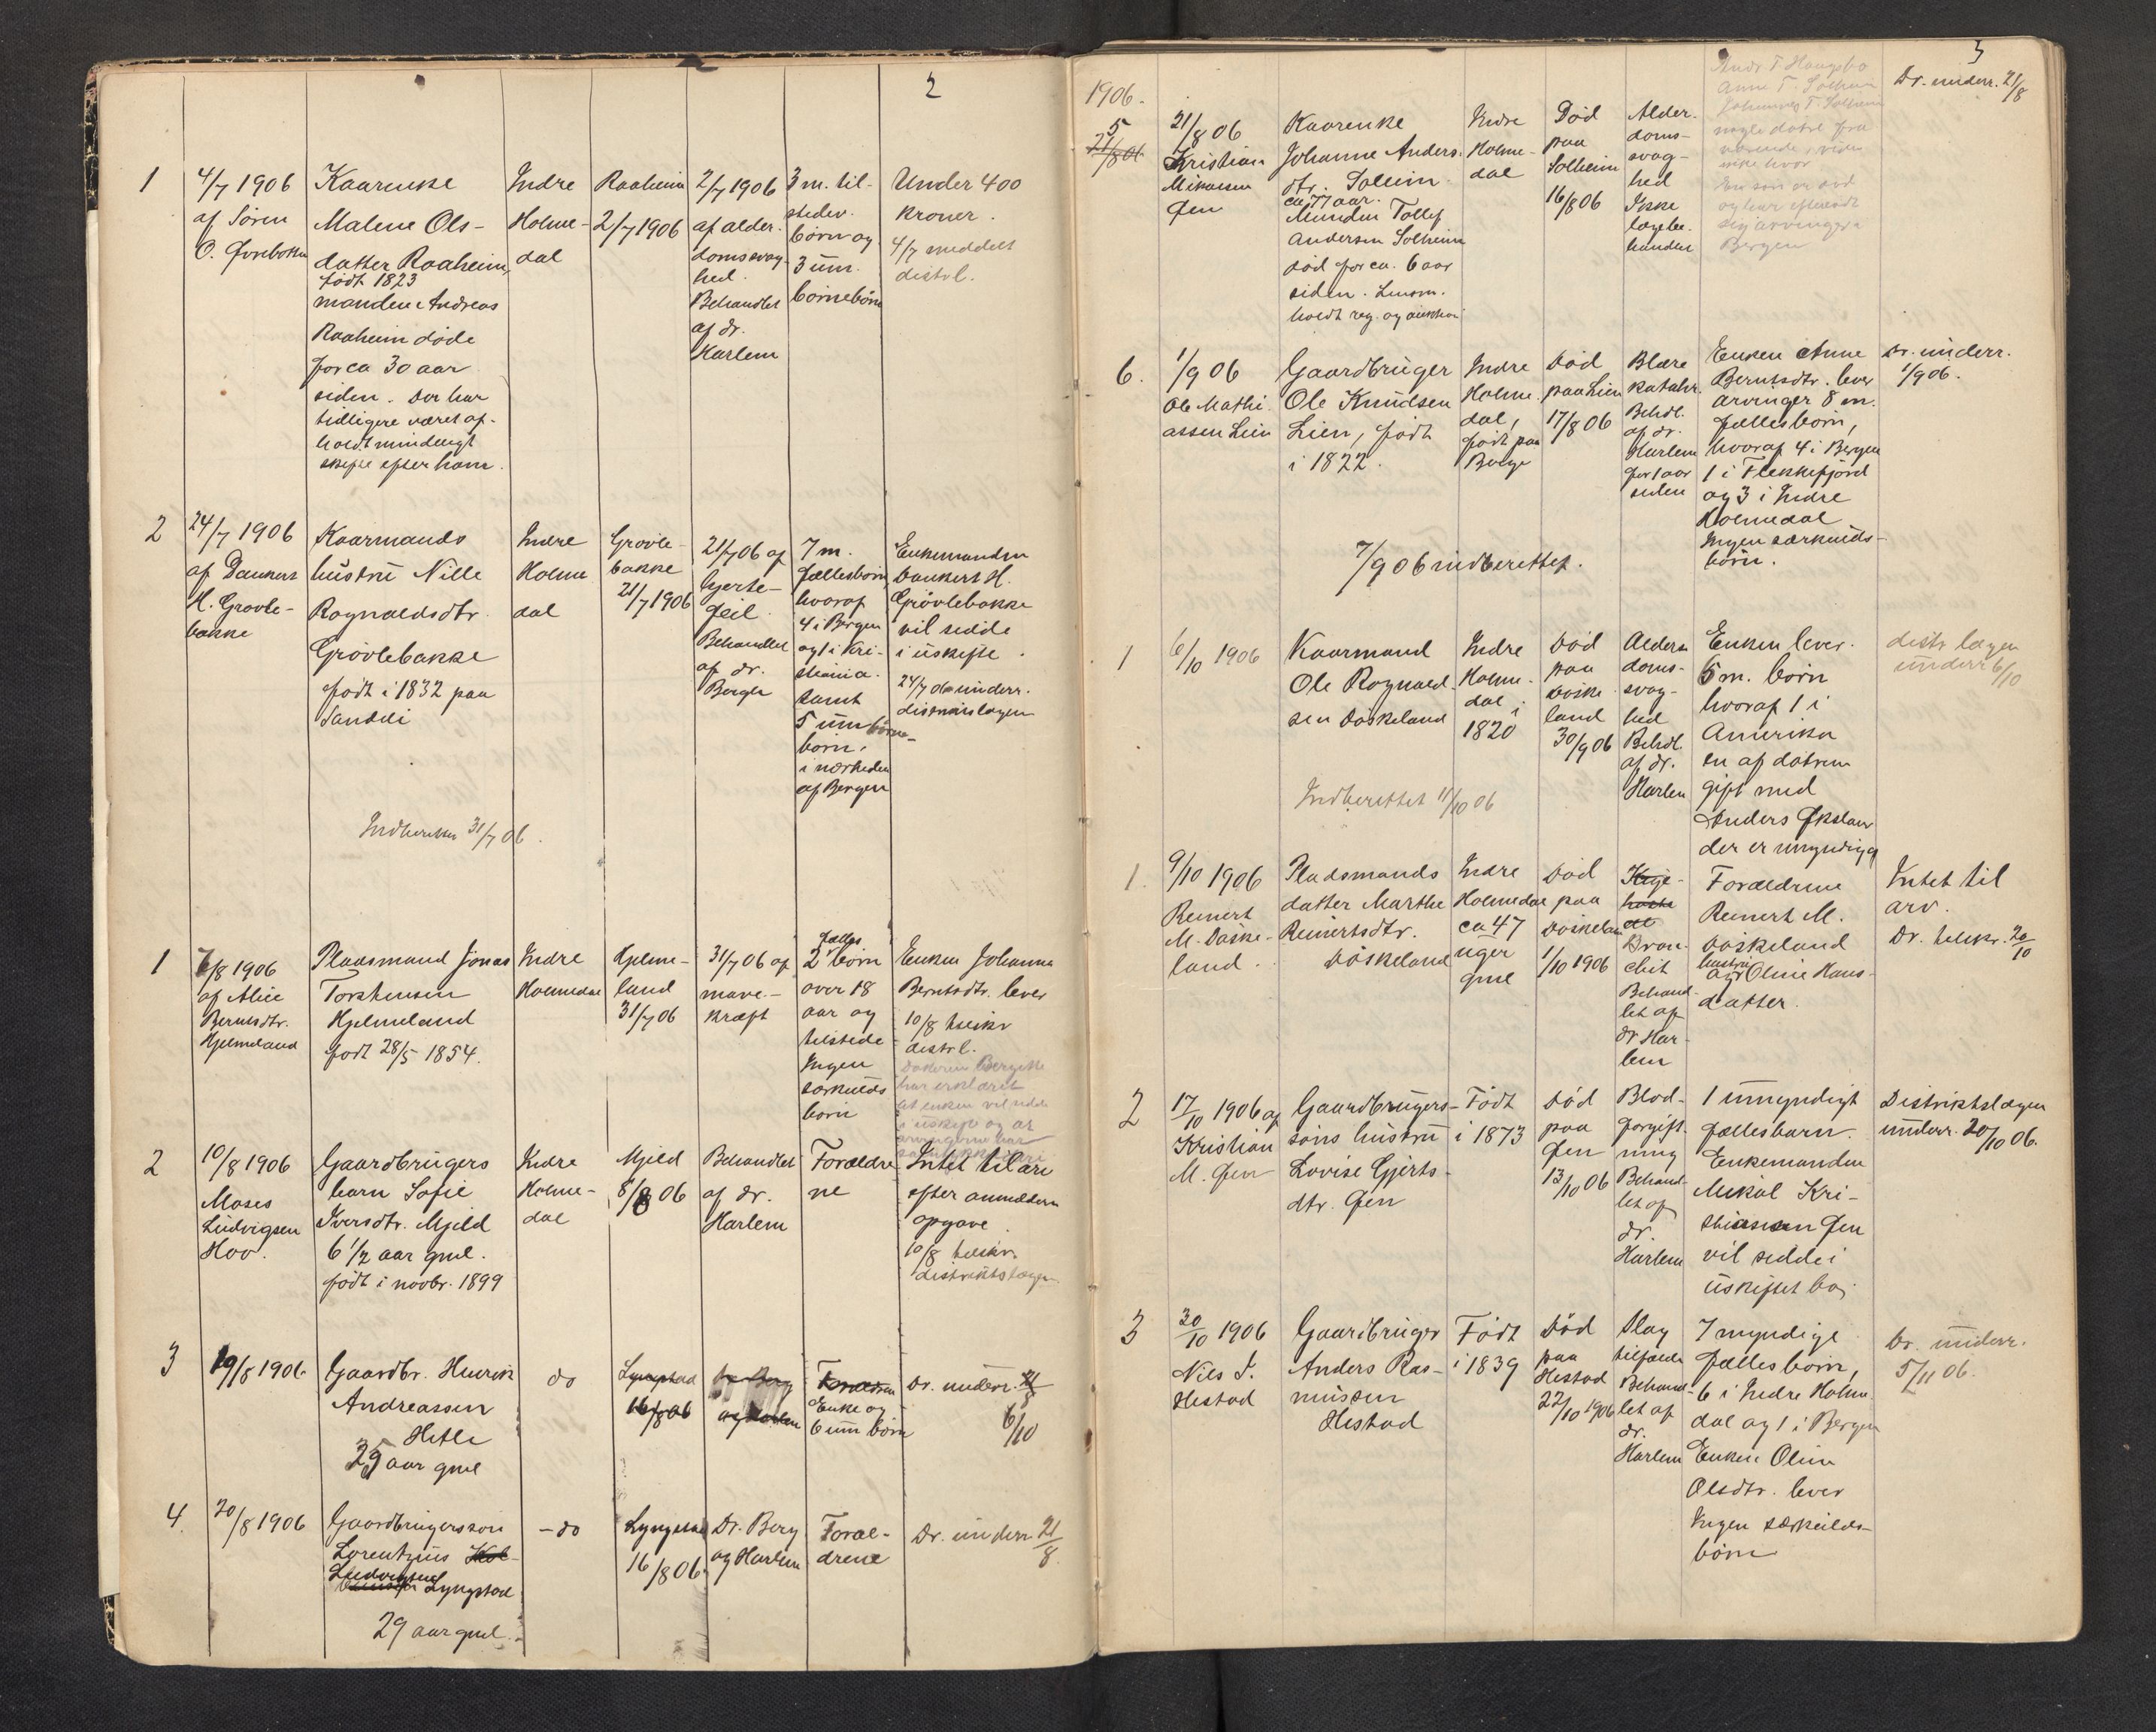 2
1
4/7 1906
af Søren
O.
Kaarenke
Malene Ols-
datter Raaheim,
født 1823
manden Andreas
Raaheim døde
for ca 30 aar
siden. Der har
tidligere været af-
holdt mindeligt
skifte efter ham.
Indre
Holme-
dal
Raaheim
2/7 1906
2/7 1906
af alder-
domssvag-
hed.
Behandlet
af dr.
Harlem
3 m. til-
stedev.
børn og
3 um.
børnebørn
Under 400
kroner.
4/7 meddelt
distrl.
2
24/7 1906
af Dankert
H. Grøvle-
bakke
Kaarmands
hustru Nille
Ragnvaldsdtr.
Grøvlebakke
født i 1832 paa
Indre
Holme
dal
Grøvle-
bakke
21/7 1906
21/7 06 af
hjerte-
feil
Behandlet
af dr.
Berger
7 m.
fællesbørn
hvoraf
4 i Bergen
og 1 i Kri-
stiania
samt
5 um børne-
børn.
i nærheden
af Bergen
Enkemanden
Dankert H.
Grøvlebakke
vil sidde
i uskifte.
24/7 06 underr.
distriktslægen
Indberettet 31/7 06.
1
7/8 1906
af Alice
Berntsdtr.
Hjelmeland
Pladsmand Jonas
Torstensen
Hjelmeland
født 28/5 1854.
Indre
Holmedal
Hjelme-
land
31/7 06
31/7 06 af
mave-
kræft
fælles
2 børn
over 18
aar og
tilstede
Ingen
særkulds
børn
Enken Johanna
Berntsdtr. lever
10/8 tilskr
distrl.
har erklæret
at enken vil sidde
i uskifte og at
arvingerne har
2
10/8 1906
Moses
Ludvigsen
Hov.
Gaardbrugers
barn Sofie
Iversdtr. Mjeld
6 1/2 aar gml.
født i novbr. 1899
Indre
Holme-
dal
Mjeld
8/8 06
Behandlet
af dr.
Harlem
Forældre
ne
Intet til arv
efter anmelderen
opgave.
10/8 tilskr.
distriktslægen
3
19/8 1906
Gaardbr. Henrik
Andreassen
Hetle
35 aar gml
do
Lyngstad
16/8 06
Dr Berg
og Harlem
Forældrene
Enke og
6 um børn
Dr. underr. 21/8
6/10
4.
20/8 1906
Gaardbrugersøn
Lorentzius
Ludvigsen
Lyngstad
29 aar gml.
- do
Lyngstad
16/8 06
Dr. Berg
og Harlem
Foræl-
drene
Dr. underr 21/8
3
1906.
5
21/8 06
21/8 06
Kristian
Mikalsen
Øen
Kaarenke
Johanne Anders-
dtr. Solheim
ca 77 aar.
Manden Tollef
Andersen Solheim
død for ca. 6 aar
siden. Lensm.
holdt reg. og auktion
Indre
Holme-
dal
Død
paa
Solheim
16/8 06
Alder-
doms-
svag-
hed
Ikke
lægebe-
handlet
Anne T. Solheim
Johannes T. Solheim
nogle døtre fra
En søn er død
og har efterladt
sig arvinger i
Bergen
Dr. underr. 21/8
6.
1/9 06
Ole Mathi-
assen Lien
Gaardbruger
Ole Knudsen
Lien, født
i 1822.
Indre
Holme-
dal,
født paa
Berge
Død
paa Lien
17/8 06
Blære
katahr.
Behdl.
af dr.
Harlem
for 1 aar
siden
Enken Anne
Berntsdtr. lever
arvinger 8 m.
fællesbørn,
hvoraf 4 i Bergen
1 i Flekkefjord
og 3 i Indre
Holmedal
Ingen særkulds-
børn.
Dr. underr.
1/9 06.
7/9 06 indberettet.
1
6/10 1906
Kaarmand
Ole Ragnvald-
sen Døskeland
Indre
Holme-
dal i
1820
Død
paa
Døske-
land
30/9 06
Alders
doms-
svag-
hed
Behdl.
af dr.
Harlem
Enken lever.
5 m. børn
hvoraf 1 i
Amerika
en af døtrene
gift med
Anders
der er umyndigg
distr lægen
underr 6/10
Indberettet 11/10 06
1.
9/10 1906
Reinert
M. Døske-
land.
Pladsmands
datter Marthe
Reinertsdtr.
Døskeland
Indre
Holmedal
ca 47
uger
gml
Død
paa
Døskeland
1/10 1906
Kige-
hoste
al
Bron-
chit
Behand-
let af
dr Har-
lem
Forældrene
Reinert M.
Døskeland
hustru
og Oline Hans-
datter.
Intet til
arv.
Dr. tilskr. 20/10
2
17/10 1906 af
Kristian
M. Øen
Gaardbrugers-
søns hustru
Lovise Gjerts-
dtr. Øen
Født
i 1873
Død
paa
Øen
13/10 06
Blod-
forgift-
ning
Behand-
let af
dr.
Harlem
1 umyndigt
fællesbarn.
Enkemanden
Mikal Kri-
stiansen Øen
vil sidde i
uskiftet bo.
Distriktslægen
underr. 20/10 06.
3
30/10 1906
Nils J.
Hestad
Gaardbruger
Anders Ras-
mussen
Hestad
Født
i 1839
Død
paa
Hestad
27/10 1906
Slag
tilfælde
Behand-
let af
dr.
Harlem
7 myndige
fællesbørn,
6 i Indre Holme-
dal og 1 i Bergen
Enken Oline
Olsdtr. lever
Ingen særkulds-
børn
Dr. underr.
5/11 06.